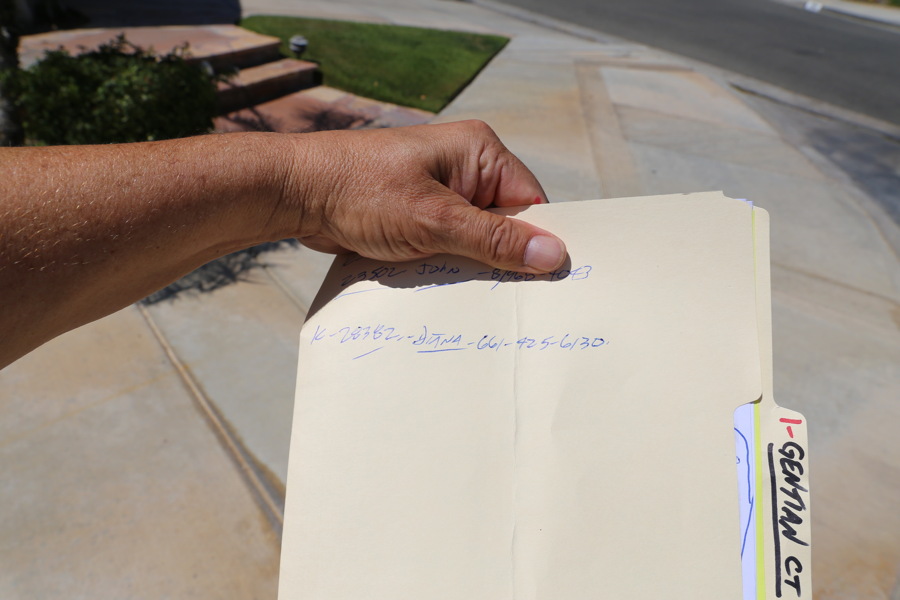 23502 JOHN -
K-28382.-DIANA-661-425-6130.
1-GENTIAN CT